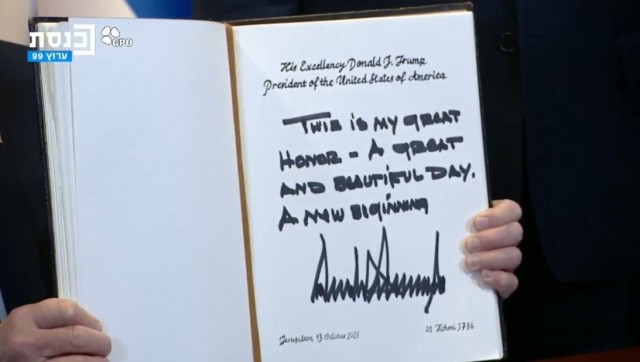 כנסת
GPO
ערוץ 99
His Excellency Donald J. Trump
President of the United States of America
THIS IS MY GREAT
HONOR - A GREAT
AND BEAUTIFUL DAY.
A NEW BEGINNING
Jerusalem, 13 October 2025
21 Tishrei 5786